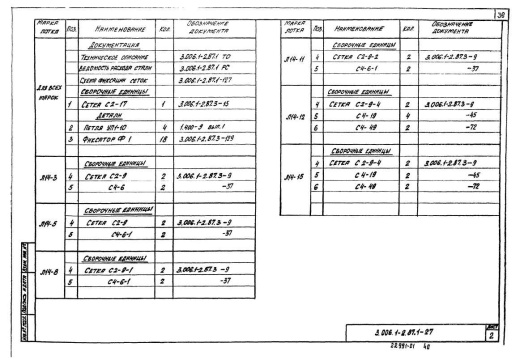 36
МАРКА ЛОТКА | ПОЗ. | НАИМЕНОВАНИЕ | КОЛ. | ОБОЗНАЧЕНИЕ ДОКУМЕНТА
ДОКУМЕНТАЦИЯ
ТЕХНИЧЕСКОЕ ОПИСАНИЕ 3.006.1-2.87.1 ТО
ВЕДОМОСТЬ РАСХОДА СТАЛИ 3.006.1-2.87.1 РС
СХЕМА ФИКСАЦИИ СЕТОК 3.006.1-2.87.1-127
ДЛЯ ВСЕХ МАРОК
СБОРОЧНЫЕ ЕДИНИЦЫ
1 СЕТКА С2-17 1 3.006.1-2.87.3-15
ДЕТАЛИ
2 ПЕТЛЯ УП1-10 4 1.400-9 ВЫП.1
3 ФИКСАТОР Ф 1 18 3.006.1-2.87.3-129
СБОРОЧНЫЕ ЕДИНИЦЫ
Л14-3 4 СЕТКА С2-8 2 3.006.1-2.87.3-9
5 С4-6 2 -37
СБОРОЧНЫЕ ЕДИНИЦЫ
Л14-5 4 СЕТКА С2-8 2 3.006.1-2.87.3-9
5 С4-6-1 2 -37
СБОРОЧНЫЕ ЕДИНИЦЫ
Л14-8 4 СЕТКА С2-8-1 2 3.006.1-2.87.3-9
5 С4-6-1 2 -37
МАРКА ЛОТКА | ПОЗ. | НАИМЕНОВАНИЕ | КОЛ. | ОБОЗНАЧЕНИЕ ДОКУМЕНТА
СБОРОЧНЫЕ ЕДИНИЦЫ
Л14-11 4 СЕТКА С2-8-2 2 3.006.1-2.87.3-9
5 С4-6-1 2 -37
СБОРОЧНЫЕ ЕДИНИЦЫ
Л14-12 4 СЕТКА С2-8-4 2 3.006.1-2.87.3-9
5 С4-19 4 -45
6 С4-48 2 -72
СБОРОЧНЫЕ ЕДИНИЦЫ
Л14-15 4 СЕТКА С2-8-4 2 3.006.1-2.87.3-9
5 С4-19 2 -45
6 С4-48 2 -72
3.006.1-2.87.1-27
ЛИСТ
2
22991-01 40